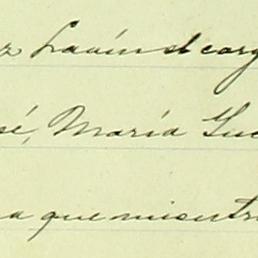 z Lavín el carg
sé, María Luc
a que mientr